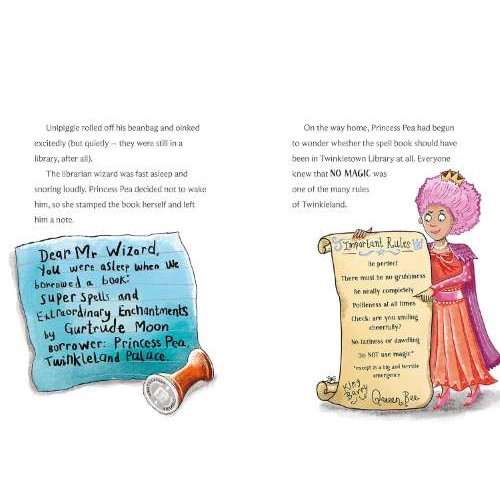 Unipiggle rolled off his beanbag and oinked
excitedly (but quietly – they were still in a
library, after all).
The librarian wizard was fast asleep and
snoring loudly. Princess Pea decided not to wake
him, so she stamped the book herself and left
him a note.
Dear Mr Wizard,
You were asleep when we
borrowed a book:
Super Spells and
Extraordinary Enchantments
by Gurtrude Moon
Borrower: Princess Pea,
Twinkleland Palace.
On the way home, Princess Pea had begun
to wonder whether the spell book should have
been in Twinkletown Library at all. Everyone
knew that NO MAGIC was
one of the many rules
of Twinkleland.
Important Rules
Be perfect
There must be no grubbiness
Be really completely
Politeness at all times
Check: are you smiling
cheerfully?
No laziness or dawdling
Do NOT use magic*
*except in a big and terrible
emergency
King
Barry
Queen Bee